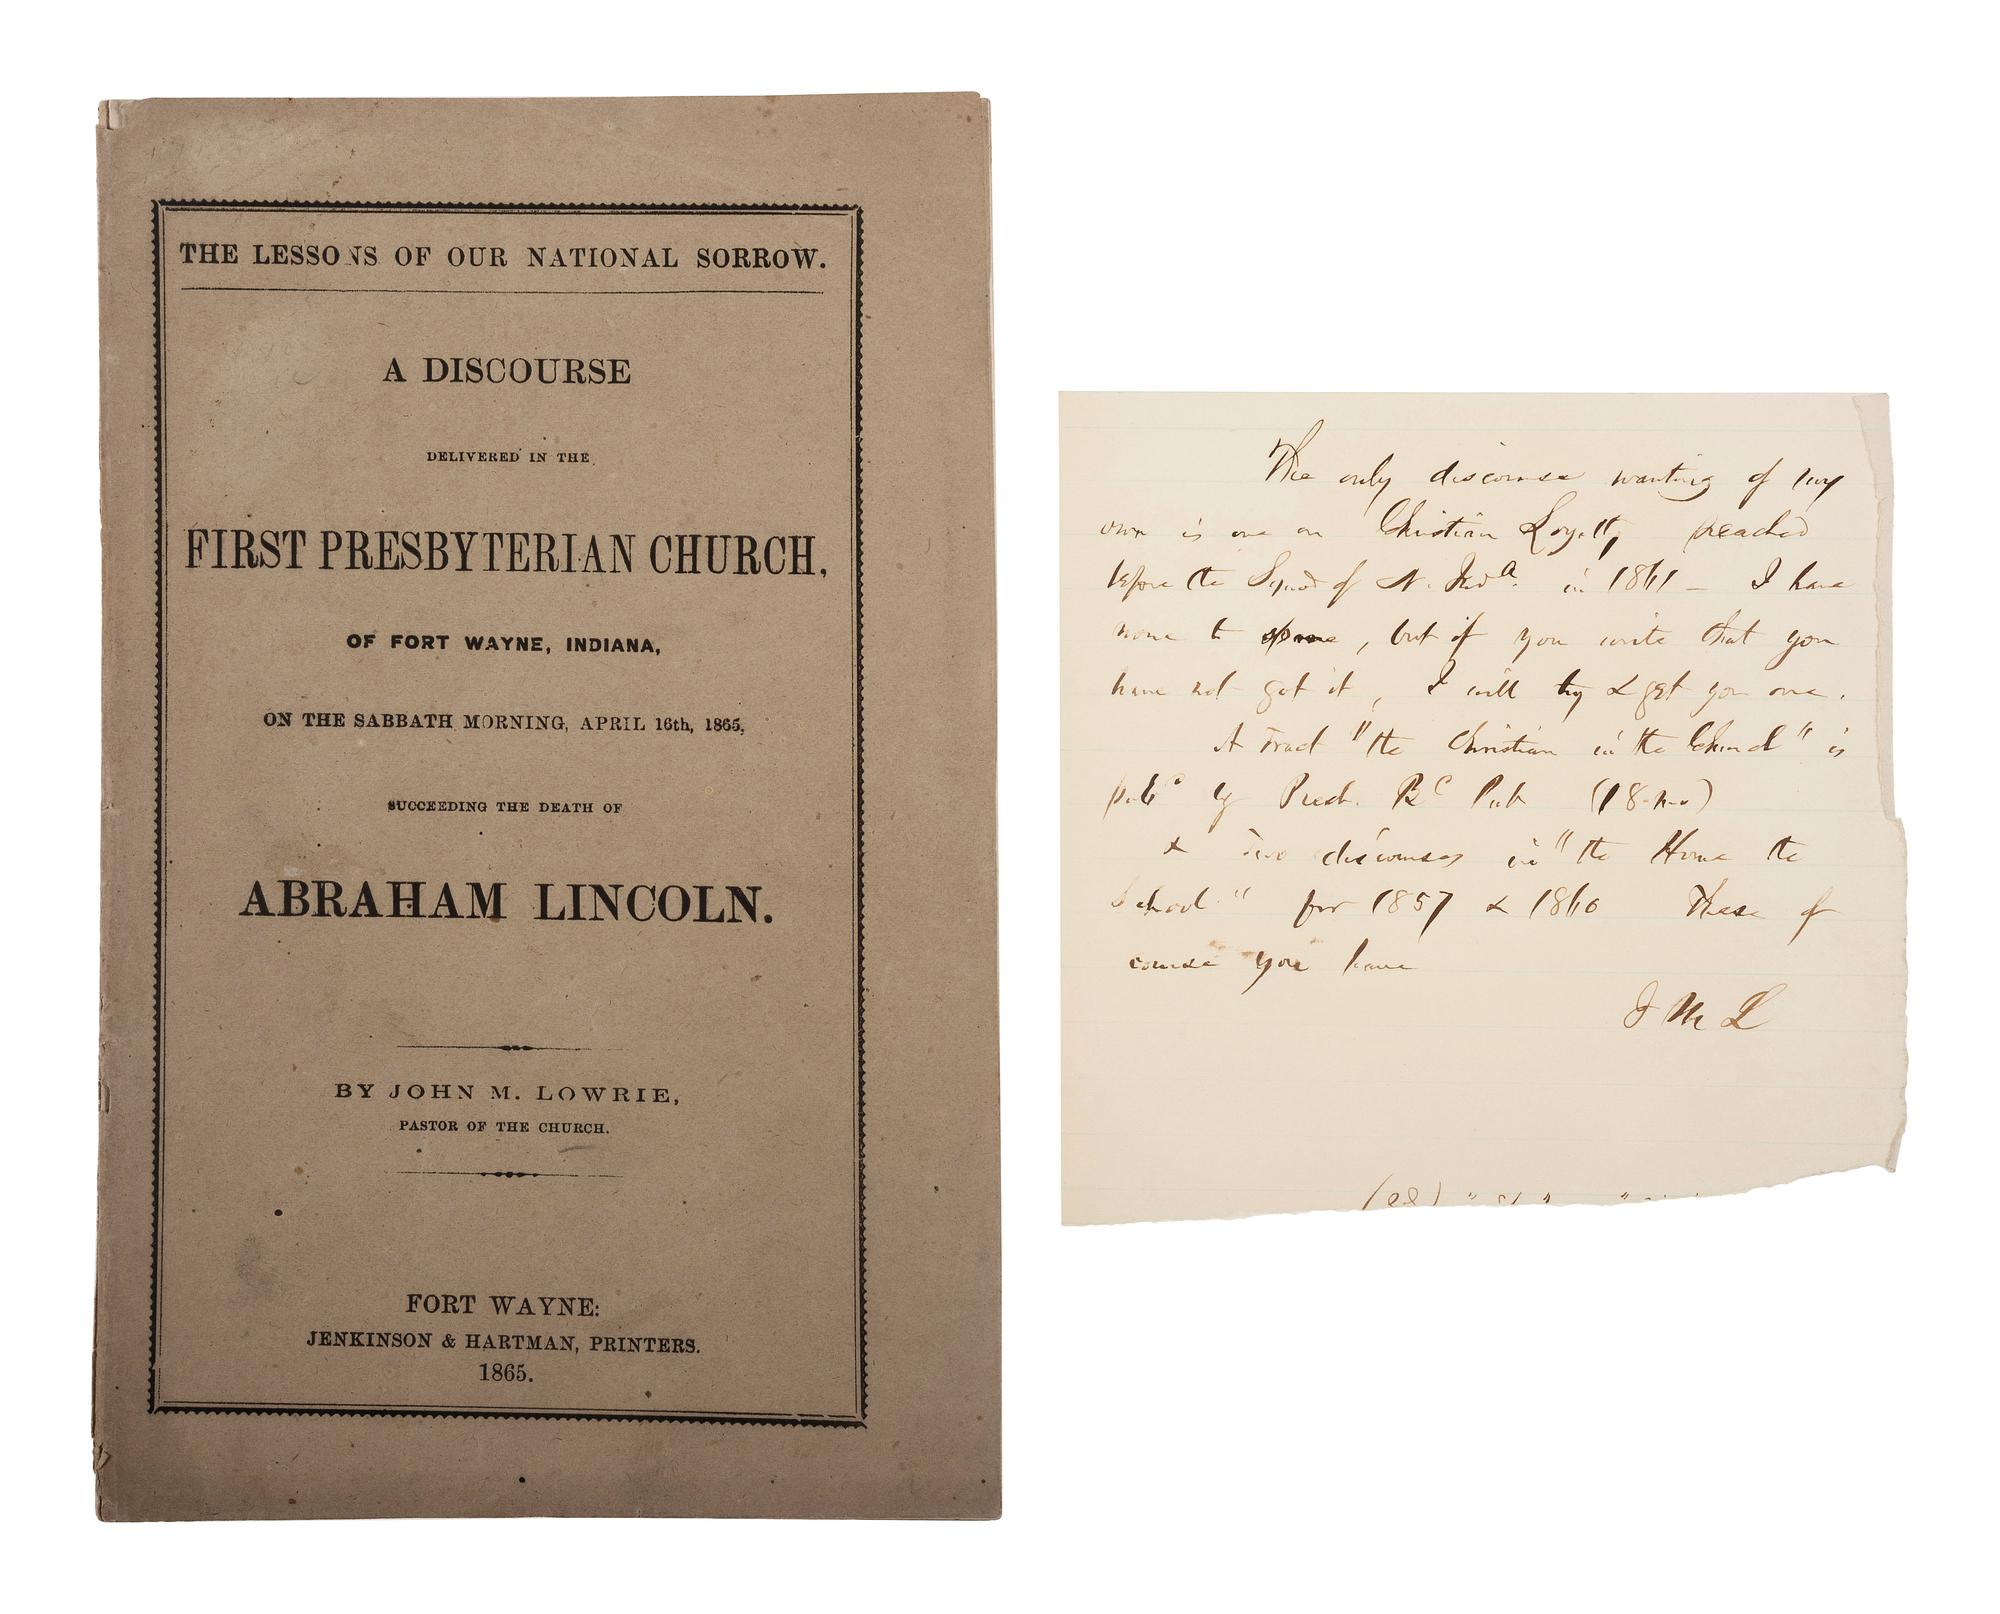 THE LESSONS OF OUR NATIONAL SORROW.
A DISCOURSE
DELIVERED IN THE
FIRST PRESBYTERIAN CHURCH,
OF FORT WAYNE, INDIANA,
ON THE SABBATH MORNING, APRIL 16th, 1865,
SUCCEEDING THE DEATH OF
ABRAHAM LINCOLN.
BY JOHN M. LOWRIE,
PASTOR OF THE CHURCH.
FORT WAYNE:
JENKINSON & HARTMAN, PRINTERS.
1865.
The only discourse wanting of my
own is one on Christian Loyalty preached
before the Synod of N. Inda. in 1861 - I have
none to spare, but if you write that you
have not got it, I will try & get you one.
A Tract "the Christian in the Church" is
pubd by Presb. Bd Pub (18-mo)
& Two discourses in "the Home the
School" for 1857 & 1860 These of
course you have
J M L